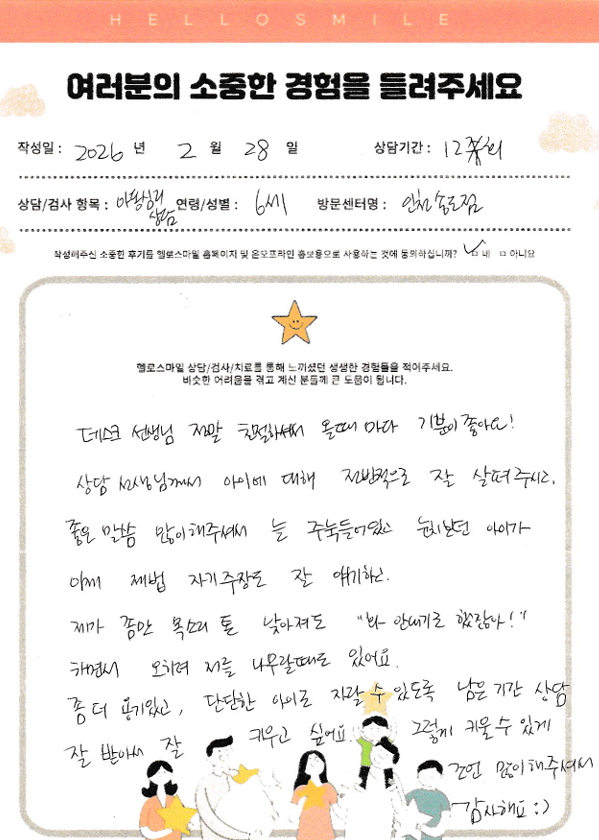 HELLOSMILE
여러분의 소중한 경험을 들려주세요
작성일 : 2026 년 2 월 28 일 상담기간 : 12회
상담/검사 항목 : 아동심리상담 연령/성별 : 6세 방문센터명 : 인천송도점
작성해주신 소중한 후기를 헬로스마일 홈페이지 및 온오프라인 홍보용으로 사용하는 것에 동의하십니까? ☑ 네 □ 아니요
헬로스마일 상담/검사/치료를 통해 느끼셨던 생생한 경험들을 적어주세요.
비슷한 어려움을 겪고 계신 분들께 큰 도움이 됩니다.
데스크 선생님 정말 친절하셔서 올때 마다 기분이 좋아요!
상담 선생님께서 아이에 대해 전반적으로 잘 살펴주시고,
좋은 말씀 많이해주셔서 늘 주눅들어있고 눈치보던 아이가
이제 제법 자기주장도 잘 얘기하고.
제가 좀만 목소리 톤 낮아져도 "화 안내기로 했잖아!"
하면서 오히려 저를 나무랄때도 있어요.
좀 더 용기있고, 단단한 아이로 자랄 수 있도록 남은 기간 상담
잘 받아서 잘 키우고 싶어요 그렇게 키울 수 있게
조언 많이해주셔서
감사해요 :)